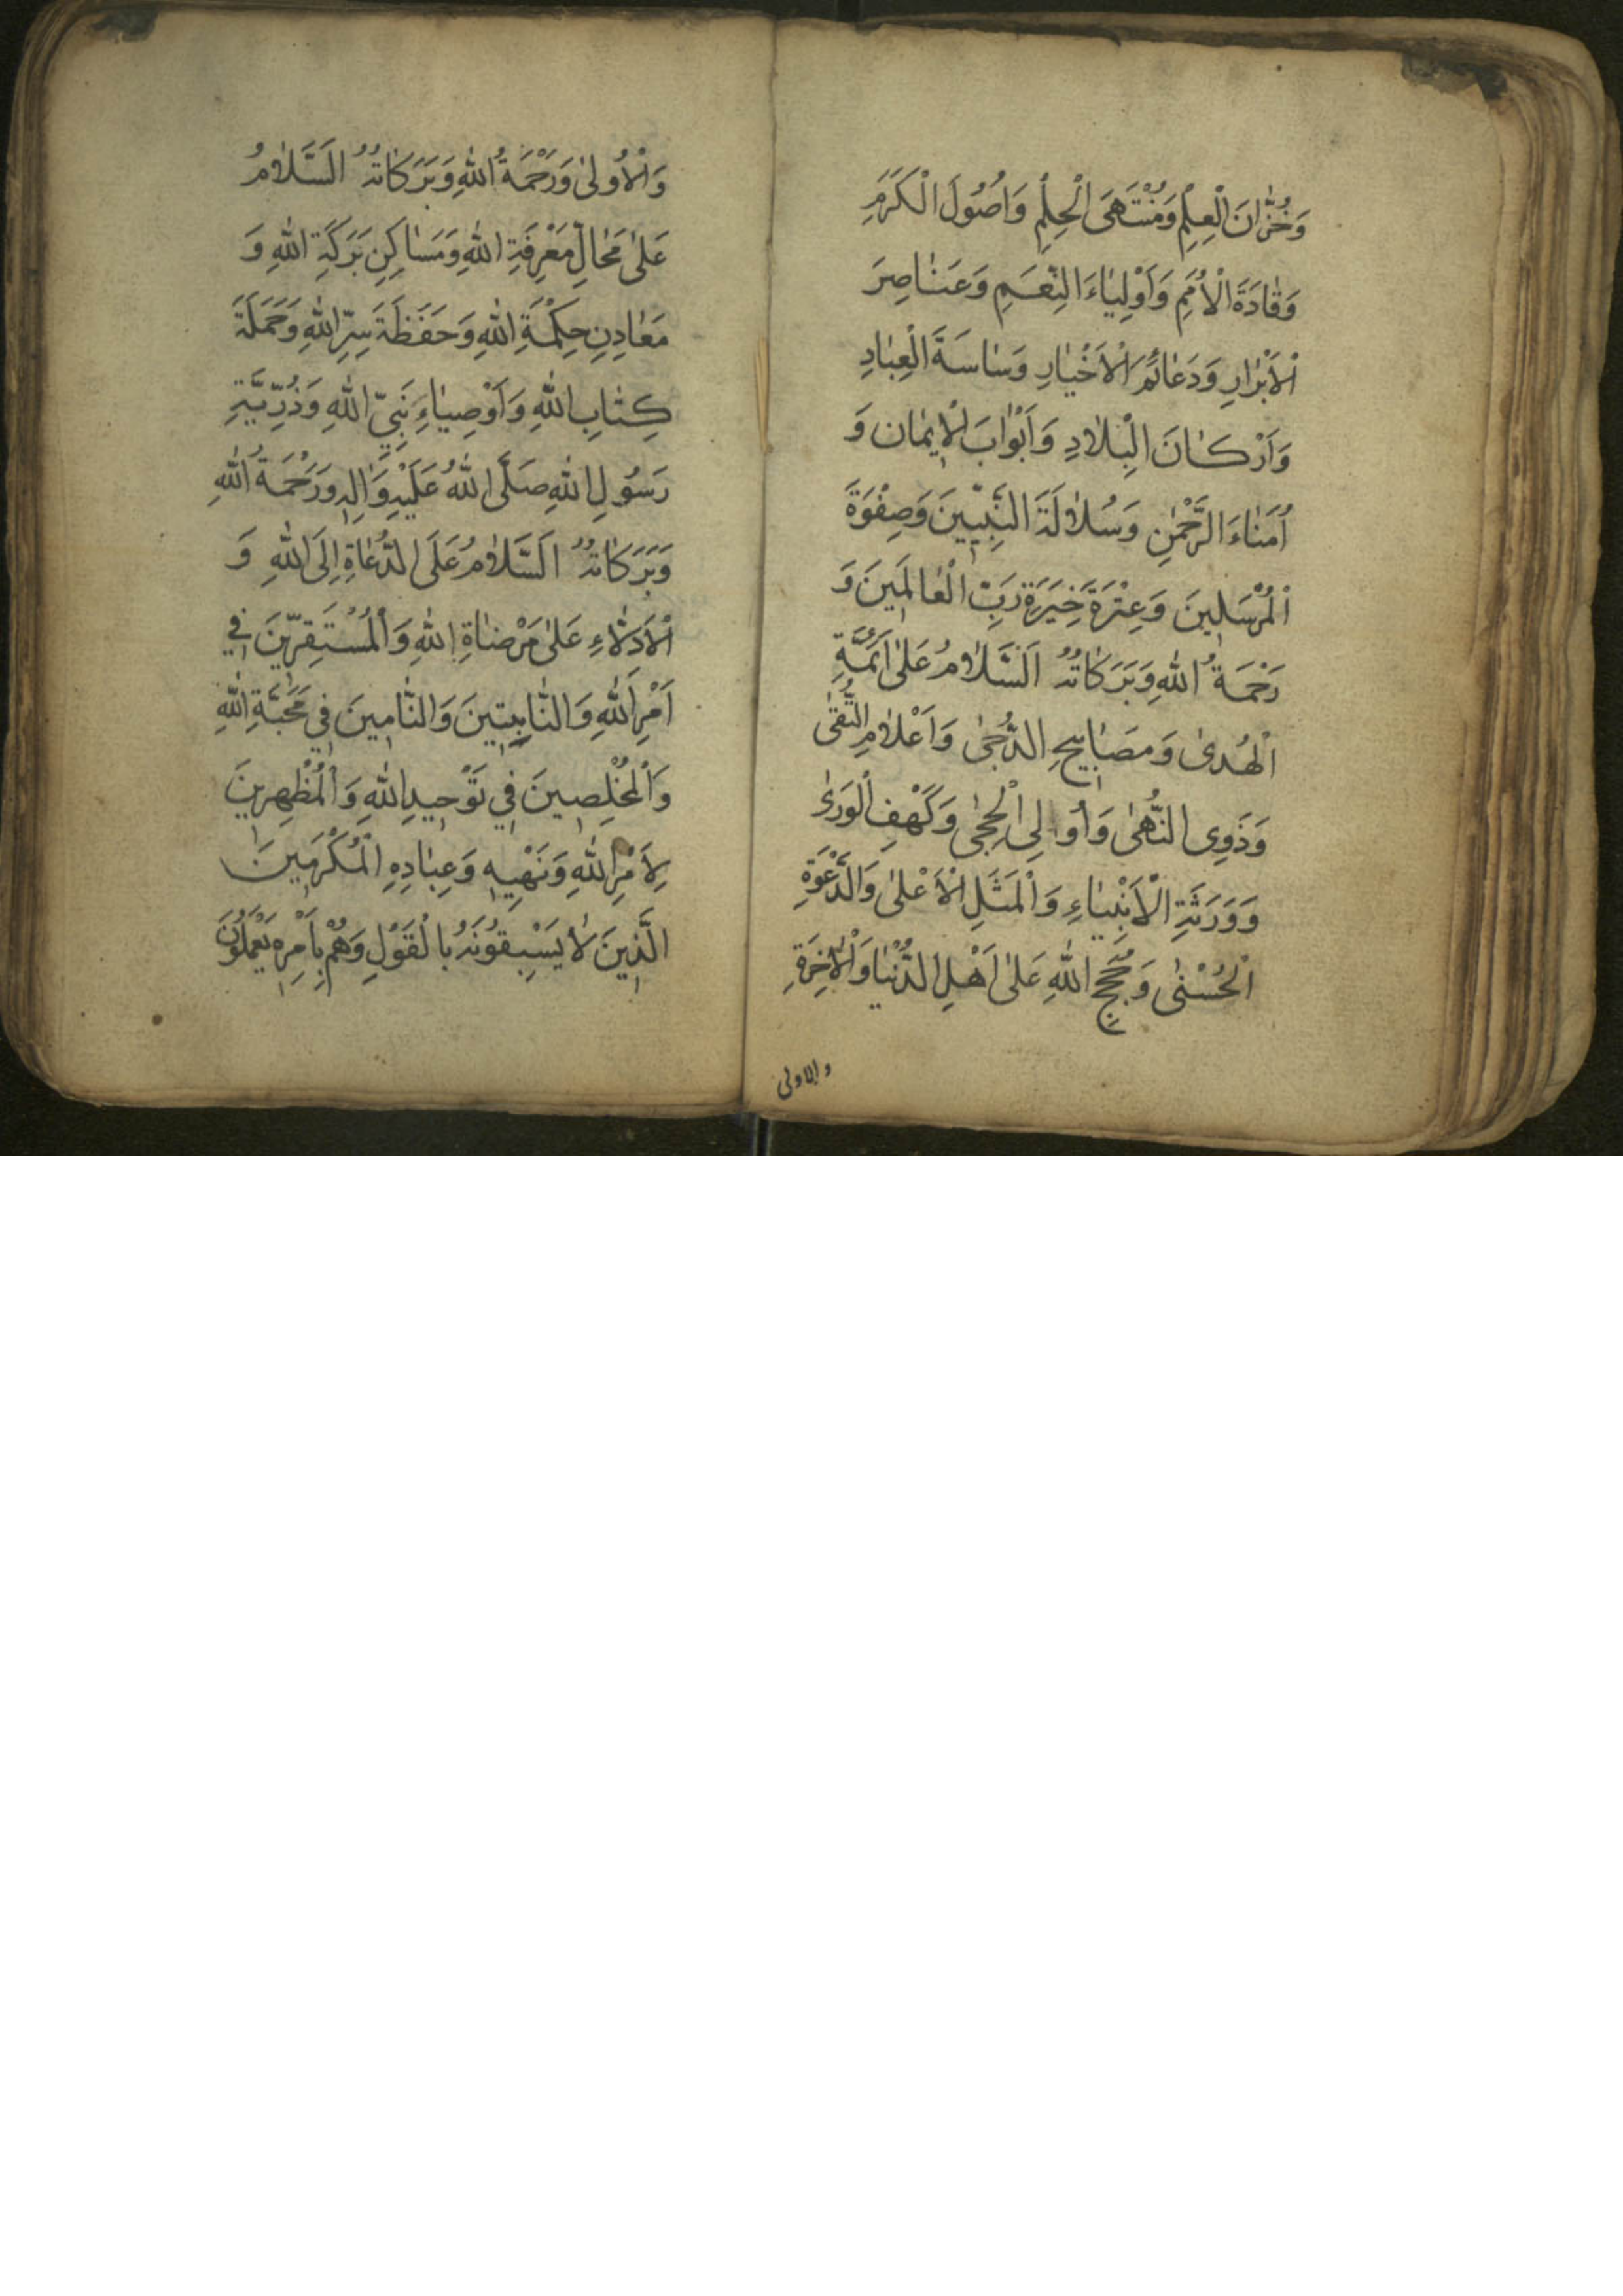 وَخُزَّانَ الْعِلْمِ وَمُنْتَهَى الْحِلْمِ وَاُصُولَ الْكَرَمِ
وَقَادَةَ الْاُمَمِ وَاَوْلِيَاءَ النِّعَمِ وَعَنَاصِرَ
الْاَبْرَارِ وَدَعَائِمَ الْاَخْيَارِ وَسَاسَةَ الْعِبَادِ
وَاَرْكَانَ الْبِلَادِ وَاَبْوَابَ الْاِيمَانِ وَ
اُمَنَاءَ الرَّحْمٰنِ وَسُلَالَةَ النَّبِيّينَ وَصِفْوَةَ
الْمُرْسَلِينَ وَعِتْرَةَ خِيَرَةِ رَبِّ الْعَالَمِينَ وَ
رَحْمَةُ اللهِ وَبَرَكَاتُهُ اَلسَّلَامُ عَلٰى اَئِمَّةِ
الْهُدٰى وَمَصَابِيحِ الدُّجٰى وَاَعْلَامِ التُّقٰى
وَذَوِى النُّهٰى وَاُولِى الْحِجٰى وَكَهْفِ الْوَرٰى
وَوَرَثَةِ الْاَنْبِيَاءِ وَالْمَثَلِ الْاَعْلٰى وَالدَّعْوَةِ
الْحُسْنٰى وَحُجَجِ اللهِ عَلٰى اَهْلِ الدُّنْيَا وَالْاٰخِرَةِ
والاولى
وَالْاُولٰى وَرَحْمَةُ اللهِ وَبَرَكَاتُهُ اَلسَّلَامُ
عَلٰى مَحَالِّ مَعْرِفَةِ اللهِ وَمَسَاكِنِ بَرَكَةِ اللهِ وَ
مَعَادِنِ حِكْمَةِ اللهِ وَحَفَظَةِ سِرِّ اللهِ وَحَمَلَةِ
كِتَابِ اللهِ وَاَوْصِيَاءِ نَبِيِّ اللهِ وَذُرِّيَّةِ
رَسُولِ اللهِ صَلَّى اللهُ عَلَيْهِ وَاٰلِهِ وَرَحْمَةُ اللهِ
وَبَرَكَاتُهُ اَلسَّلَامُ عَلَى الدُّعَاةِ اِلَى اللهِ وَ
الْاَدِلَّاءِ عَلٰى مَرْضَاةِ اللهِ وَالْمُسْتَقِرّينَ فِي
اَمْرِ اللهِ وَالثَّابِتِينَ وَالتَّامِينَ فِي مَحَبَّةِ اللهِ
وَالْمُخْلِصِينَ فِي تَوْحِيدِ اللهِ وَالْمُظْهِرِينَ
لِاَمْرِ اللهِ وَنَهْيِهِ وَعِبَادِهِ الْمُكْرَمِينَ
الَّذِينَ لَا يَسْبِقُونَهُ بِالْقَوْلِ وَهُمْ بِاَمْرِهِ يَعْمَلُونَ